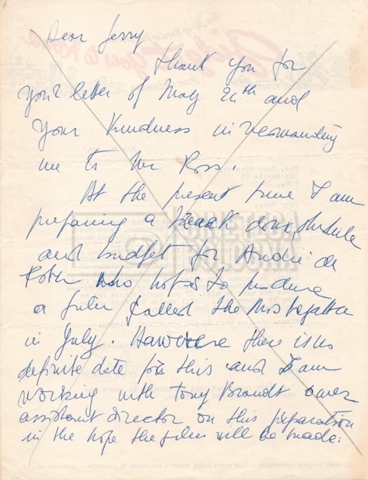 Dear Jerry
Thank you for
your letter of May 24th and
your kindness in recommending
me to Mr Ross.
At the present time I am
preparing a break down schedule
and budget for André de
who hopes to produce
a film called the
in July. However there is no
definite date for this and I am
working with Tony Brandt
assistant director on this preparation
in the hope the film will be made.